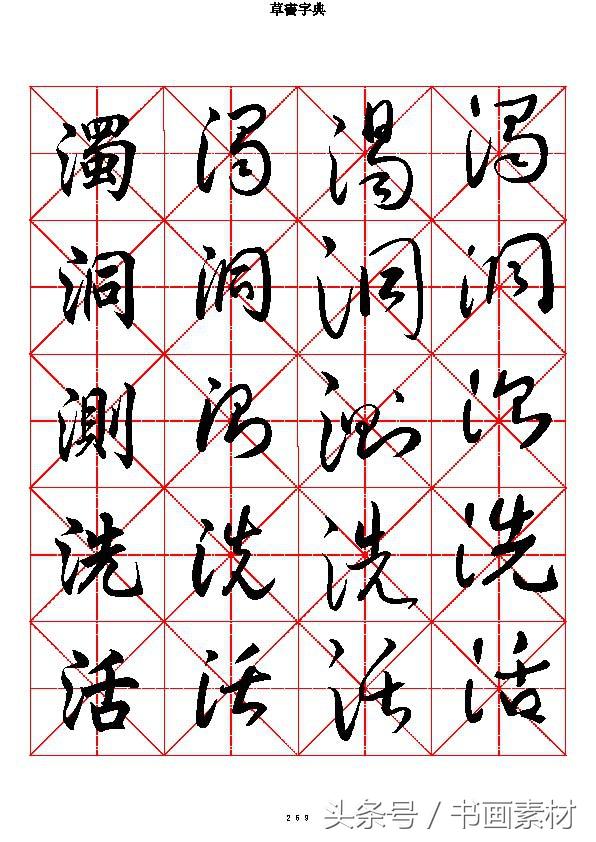 草書字典
濁 濁 濁 濁
洞 洞 洞 洞
測 測 測 測
洗 洗 洗 洗
活 活 活 活
269
头条号 / 书画素材